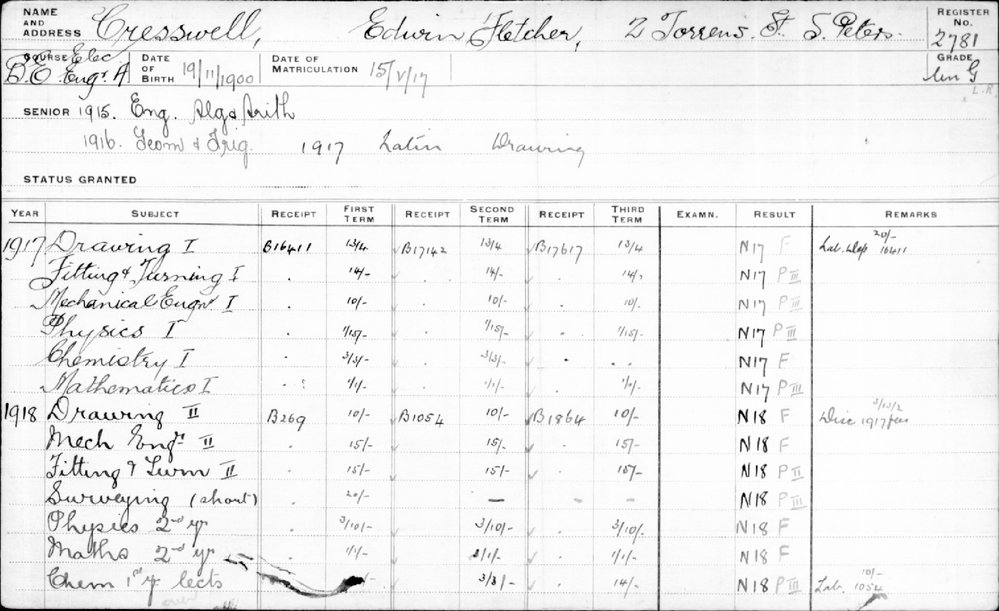 NAME AND ADDRESS Cresswell, Edwin Fletcher, 2 Torrens St. S. Peters. REGISTER No. 2781
COURSE Elec B.E. Engr. A DATE OF BIRTH 19/11/1900 DATE OF MATRICULATION 15/V/17 GRADE Un G
L.R
SENIOR 1915. Eng. Alg & Arith
1916. Geom & Trig. 1917 Latin Drawing
STATUS GRANTED
YEAR SUBJECT RECEIPT FIRST TERM RECEIPT SECOND TERM RECEIPT THIRD TERM EXAMN. RESULT REMARKS
1917 Drawing I B16411 13/4 B17142 13/4 B17617 13/4 N17 F Lab. Dep 20/- 16411
Fitting & Turning I . 14/- . 14/- . 14/- N17 P III
Mechanical Engr I . 10/- . 10/- . 10/- N17 P III
Physics I . 1/15/- . 1/15/- . 1/15/- N17 P III
Chemistry I . 3/3/- . 3/3/- . . N17 F
Mathematics I . 1/1/- . 1/1/- . 1/1/- N17 P III
1918 Drawing II B269 10/- B1054 10/- B1864 10/- N18 F Disc 1917 fees 3/13/2
Mech Engr. II . 15/- . 15/- . 15/- N18 F
Fitting & Turn II . 15/- . 15/- . 15/- N18 P II
Surveying (short) . 20/- – – – N18 P III
Physics 2nd yr . 3/10/- . 3/10/- . 3/10/- N18 F
Maths 2nd yr 1/1/- . 2/1/- . 1/1/- N18 F
Chem 1st y lects 3/3/- . 14/- N18 P III Lab. 10/- 1054
over